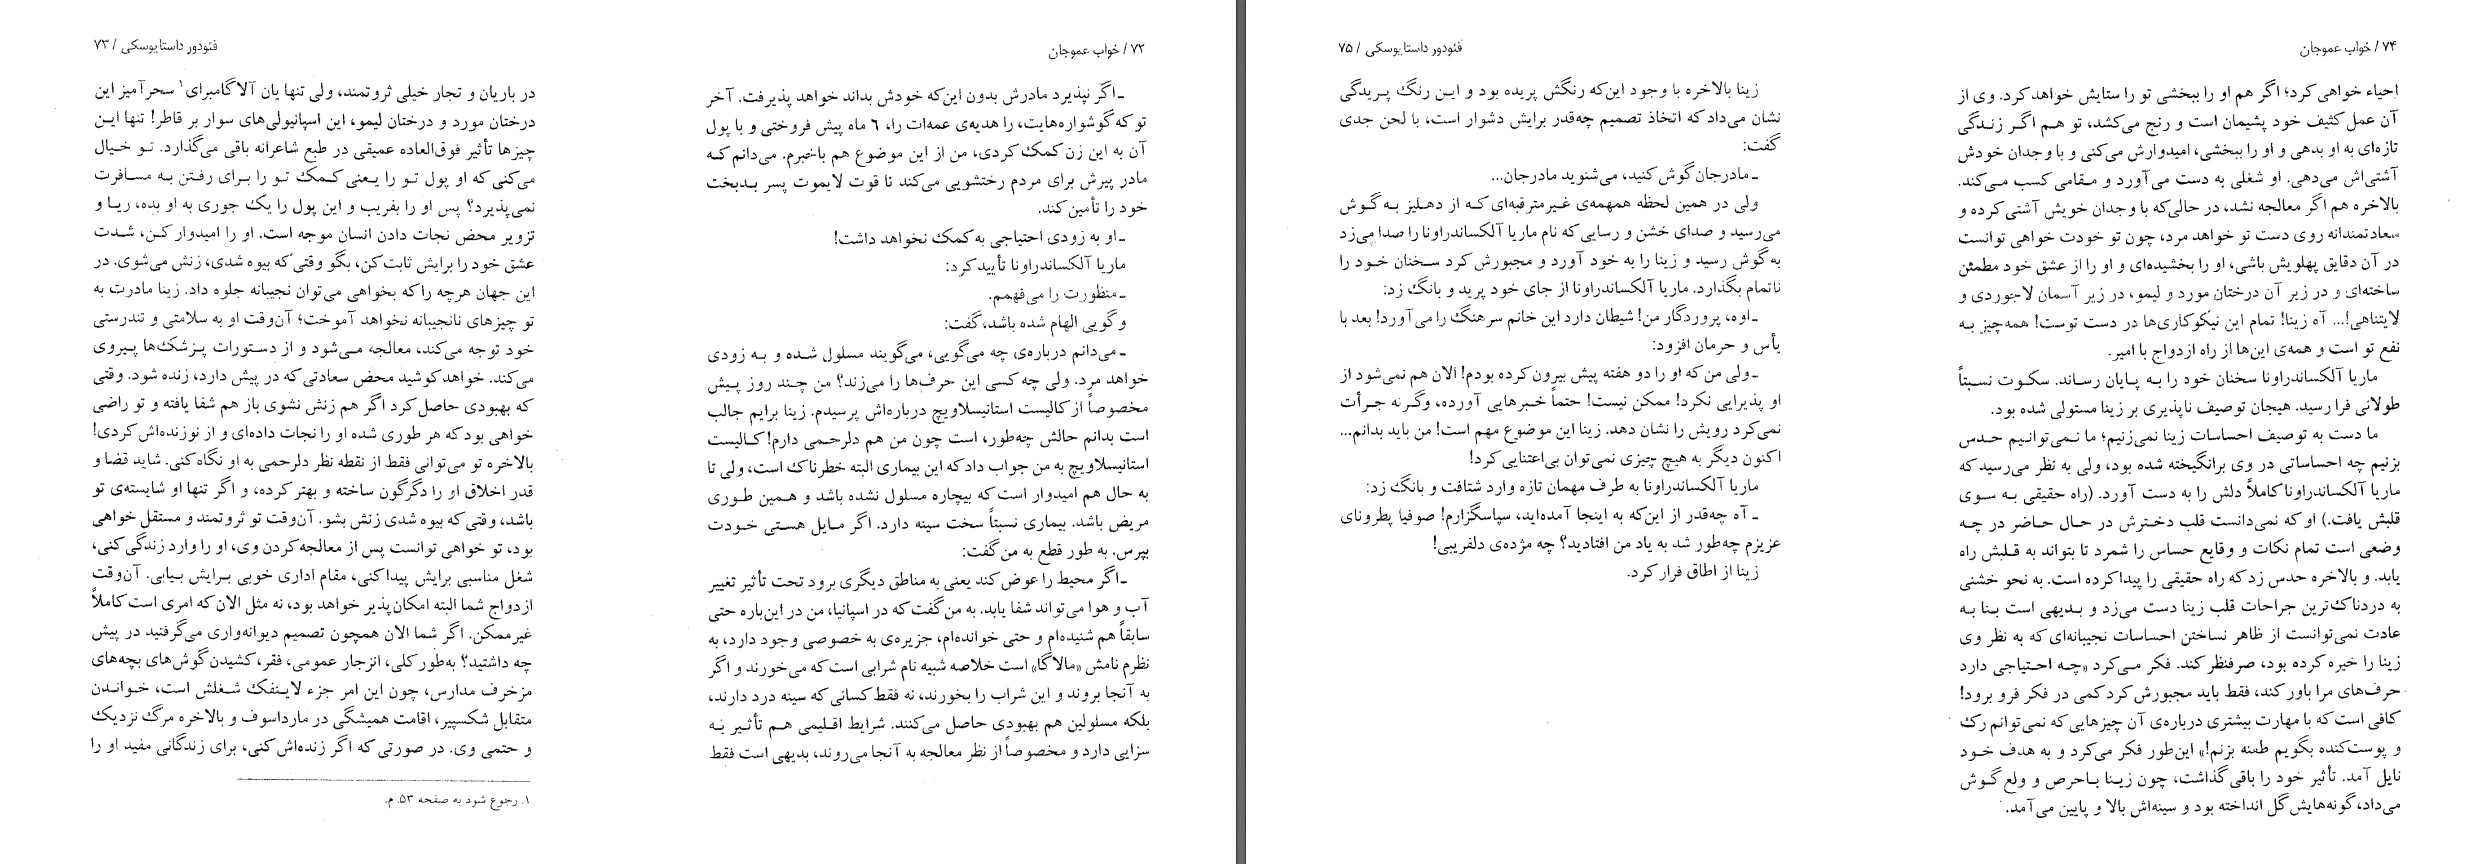 ۷۲ / خواب عموجان
ـ اگر نپذیرد مادرش بدون این‌که خودش بداند خواهد پذیرفت. آخر
تو که گوشواره‌هایت، را هدیه‌ی عمه‌ات را، ۶ ماه پیش فروختی و با پول
آن به این زن کمک کردی، من از این موضوع هم باخبرم. می‌دانم که
مادر پیرش برای مردم رختشویی می‌کند تا قوت لایموت پسر بدبخت
خود را تأمین کند.
ـ او به زودی احتیاجی به کمک نخواهد داشت!
ماریا آلکساندراونا تأیید کرد:
ـ منظورت را می‌فهمم.
و گویی الهام شده باشد، گفت:
ـ می‌دانم درباره‌ی، چه می‌گویی، می‌گویند مسلول شده و به زودی
خواهد مرد. ولی چه کسی این حرف‌ها را می‌زند؟ من چند روز پیش
مخصوصاً از کالیست استانیسلاویچ درباره‌اش پرسیدم. زینا برایم جالب
است بدانم حالش چه‌طور، است چون من هم دلرحمی دارم! کالیست
استانیسلاویچ به من جواب داد که این بیماری البته خطرناک است، ولی تا
به حال هم امیدوار است که بیچاره مسلول نشده باشد و همین طوری
مریض باشد. بیماری نسبتاً سخت سینه دارد. اگر مایل هستی خودت
بپرس. به طور قطع به من گفت:
ـ اگر محیط را عوض کند یعنی به مناطق دیگری برود تحت تأثیر تغییر
آب و هوا می‌تواند شفا یابد. به من گفت که در اسپانیا، من در این‌باره حتی
سابقاً هم شنیده‌ام و حتی خوانده‌ام، جزیره‌ی به خصوصی وجود دارد، به
نظرم نامش «مالاگا» است خلاصه شبیه نام شرابی است که می‌خورند و اگر
به آنجا بروند و این شراب را بخورند، نه فقط کسانی که سینه درد دارند،
بلکه مسلولین هم بهبودی حاصل می‌کنند. شرایط اقلیمی هم تأثیر به
سزایی دارد و مخصوصاً از نظر معالجه به آنجا می‌روند، بدیهی است فقط
فئودور داستایوسکی / ۷۳
در باریان و تجار خیلی ثروتمند، ولی تنها یان آلاگامبرای۱ سحرآمیز این
درختان مورد و درختان لیمو، این اسپانیولی‌های سوار بر قاطر! تنها این
چیزها تأثیر فوق‌العاده عمیقی در طبع شاعرانه باقی می‌گذارد. تو خیال
می‌کنی که او پول تو را یعنی کمک تو را برای رفتن به مسافرت
نمی‌پذیرد؟ پس او را بفریب و این پول را یک جوری به او بده، ریا و
تزویر محض نجات دادن انسان موجه است. او را امیدوار کن، شدت
عشق خود را برایش ثابت کن، بگو وقتی که بیوه شدی، زنش می‌شوی. در
این جهان هرچه را که بخواهی می‌توان نجیبانه جلوه داد. زینا مادرت به
تو چیزهای نانجیبانه نخواهد آموخت؛ آن‌وقت او به سلامتی و تندرستی
خود توجه می‌کند، معالجه می‌شود و از دستورات پزشک‌ها پیروی
می‌کند. خواهد کوشید محض سعادتی که در پیش دارد، زنده شود. وقتی
که بهبودی حاصل کرد اگر هم زنش نشوی باز هم شفا یافته و تو راضی
خواهی بود که هر طوری شده او را نجات داده‌ای و از نوزنده‌اش کردی!
بالاخره تو می‌توانی فقط از نقطه نظر دلرحمی به او نگاه کنی. شاید قضا و
قدر اخلاق او را دگرگون ساخته و بهتر کرده، و اگر تنها او شایسته‌ی تو
باشد، وقتی که بیوه شدی زنش بشو. آن‌وقت تو ثروتمند و مستقل خواهی
بود، تو خواهی توانست پس از معالجه کردن وی، او را وارد زندگی کنی،
شغل مناسبی برایش پیدا کنی، مقام اداری خوبی برایش بیابی. آن‌وقت
ازدواج شما البته امکان‌پذیر خواهد بود، نه مثل الان که امری است کاملاً
غیرممکن. اگر شما الان همچون تصمیم دیوانه‌واری می‌گرفتید در پیش
چه داشتید؟ به‌طور کلی، انزجار عمومی، فقر، کشیدن گوش‌های بچه‌های
مزخرف مدارس، چون این امر جزء لاینفک شغلش است، خواندن
متقابل شکسپیر، اقامت همیشگی در مارداسوف و بالاخره مرگ نزدیک
و حتمی وی. در صورتی که اگر زنده‌اش کنی، برای زندگانی مفید او را
۱. رجوع شود به صفحه ۵۳. م.
۷۴ / خواب عموجان
احیاء خواهی کرد؛ اگر هم او را ببخشی تو را ستایش خواهد کرد. وی از
آن عمل کثیف خود پشیمان است و رنج می‌کشد، تو هم اگر زندگی
تازه‌ای به او بدهی و او را ببخشی، امیدوارش می‌کنی و با وجدان خودش
آشتی‌اش می‌دهی. او شغلی به دست می‌آورد و مقامی کسب می‌کند.
بالاخره هم اگر معالجه نشد، در حالی‌که با وجدان خویش آشتی کرده و
سعادتمندانه روی دست تو خواهد مرد، چون تو خودت خواهی توانست
در آن دقایق پهلویش باشی، او را بخشیده‌ای و او را از عشق خود مطمئن
ساخته‌ای و در زیر آن درختان مورد و لیمو، در زیر آسمان لاجوردی و
لایتناهی!... آه زینا! تمام این نیکوکاری‌ها در دست توست! همه‌چیز به
نفع تو است و همه‌ی این‌ها از راه ازدواج با امیر.
ماریا آلکساندراونا سخنان خود را به پایان رساند. سکوت نسبتاً
طولانی فرا رسید. هیجان توصیف ناپذیری بر زینا مستولی شده بود.
ما دست به توصیف احساسات زینا نمی‌زنیم؛ ما نمی‌توانیم حدس
بزنیم چه احساساتی در وی برانگیخته شده بود، ولی به نظر می‌رسید که
ماریا آلکساندراونا کاملاً دلش را به دست آورد. (راه حقیقی به سوی
قلبش یافت.) او که نمی‌دانست قلب دخترش در حال حاضر در چه
وضعی است تمام نکات و وقایع حساس را شمرد تا بتواند به قلبش راه
یابد. و بالاخره حدس زد که راه حقیقی را پیدا کرده است. به نحو خشنی
به دردناک‌ترین جراحات قلب زینا دست می‌زد و بدیهی است بنا به
عادت نمی‌توانست از ظاهر نساختن احساسات نجیبانه‌ای که به نظر وی
زینا را خیره کرده بود، صرفنظر کند. فکر می‌کرد «چه احتیاجی دارد
حرف‌های مرا باور کند، فقط باید مجبورش کرد کمی در فکر فرو برود!
کافی است که با مهارت بیشتری درباره‌ی آن چیزهایی که نمی‌توانم رک
و پوست‌کنده بگویم طعنه بزنم!» این‌طور فکر می‌کرد و به هدف خود
نایل آمد. تأثیر خود را باقی گذاشت، چون زینا باحرص و ولع گوش
می‌داد، گونه‌هایش گل انداخته بود و سینه‌اش بالا و پایین می‌آمد.
فئودور داستایوسکی / ۷۵
زینا بالاخره با وجود این‌که رنگش پریده بود و این رنگ پریدگی
نشان می‌داد که اتخاذ تصمیم چه‌قدر برایش دشوار است، با لحن جدی
گفت:
ـ مادرجان گوش کنید، می‌شنوید مادرجان...
ولی در همین لحظه همهمه‌ی غیرمترقبه‌ای که از دهلیز به گوش
می‌رسید و صدای خشن و رسایی که نام ماریا آلکساندراونا را صدا می‌زد
به گوش رسید و زینا را به خود آورد و مجبورش کرد سخنان خود را
ناتمام بگذارد. ماریا آلکساندراونا از جای خود پرید و بانگ زد:
ـ اوه، پروردگار من! شیطان دارد این خانم سرهنگ را می‌آورد! بعد با
یأس و حرمان افزود:
ـ ولی من که او را دو هفته پیش بیرون کرده بودم! الان هم نمی‌شود از
او پذیرایی نکرد! ممکن نیست! حتماً خبرهایی آورده، وگرنه جرأت
نمی‌کرد رویش را نشان دهد. زینا این موضوع مهم است! من باید بدانم...
اکنون دیگر به هیچ چیزی نمی‌توان بی‌اعتنایی کرد!
ماریا آلکساندراونا به طرف مهمان تازه وارد شتافت و بانگ زد:
ـ آه چه‌قدر از این‌که به اینجا آمده‌اید، سپاسگزارم! صوفیا پطرونای
عزیزم چه‌طور شد به یاد من افتادید؟ چه مژده‌ی دلفریبی!
زینا از اطاق فرار کرد.